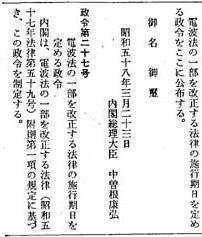 電波法の一部を改正する法律の施行期日を定め
る政令をここに公布する。
御名 御璽
昭和五十八年三月二十三日
内閣総理大臣 中曽根康弘
政令第二十七号
電波法の一部を改正する法律の施行期日を
定める政令
内閣は、電波法の一部を改正する法律（昭和五
十七年法律第五十九号）附則第一項の規定に基づ
き、この政令を制定する。